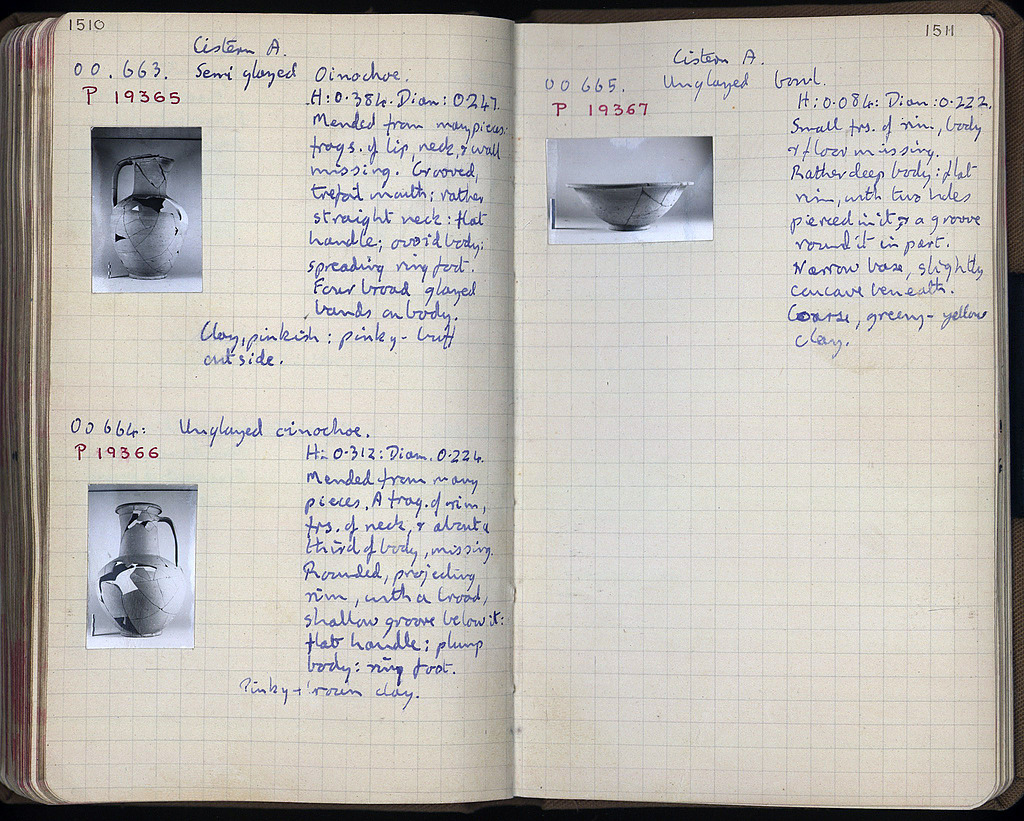 1510
Cistern A.
OO. 663. Semi glazed Oinochoe.
P 19365
H: 0.384. Diam: 0.247.
Mended from many pieces:
frags. of lip, neck, & wall
missing. Grooved,
trefoil mouth; rather
straight neck: flat
handle; ovoid body:
spreading ring foot.
Four broad glazed
bands on body.
Clay, pinkish: pinky-buff
outside.
OO 664: Unglazed oinochoe.
P 19366
H: 0.312: Diam. 0.224.
Mended from many
pieces. A frag. of rim,
frs. of neck, & about a
third of body, missing.
Rounded, projecting
rim, with a broad,
shallow groove below it:
flat handle; plump
body: ring foot.
Pinky-brown clay.
1511
Cistern A.
OO 665. Unglazed bowl.
P 19367
H: 0.084: Diam: 0.222.
Small frs. of rim, body
& floor missing.
Rather deep body: flat
rim, with two holes
pierced in it, & a groove
round it in part.
Narrow base, slightly
concave beneath.
Coarse, greeny-yellow
clay.